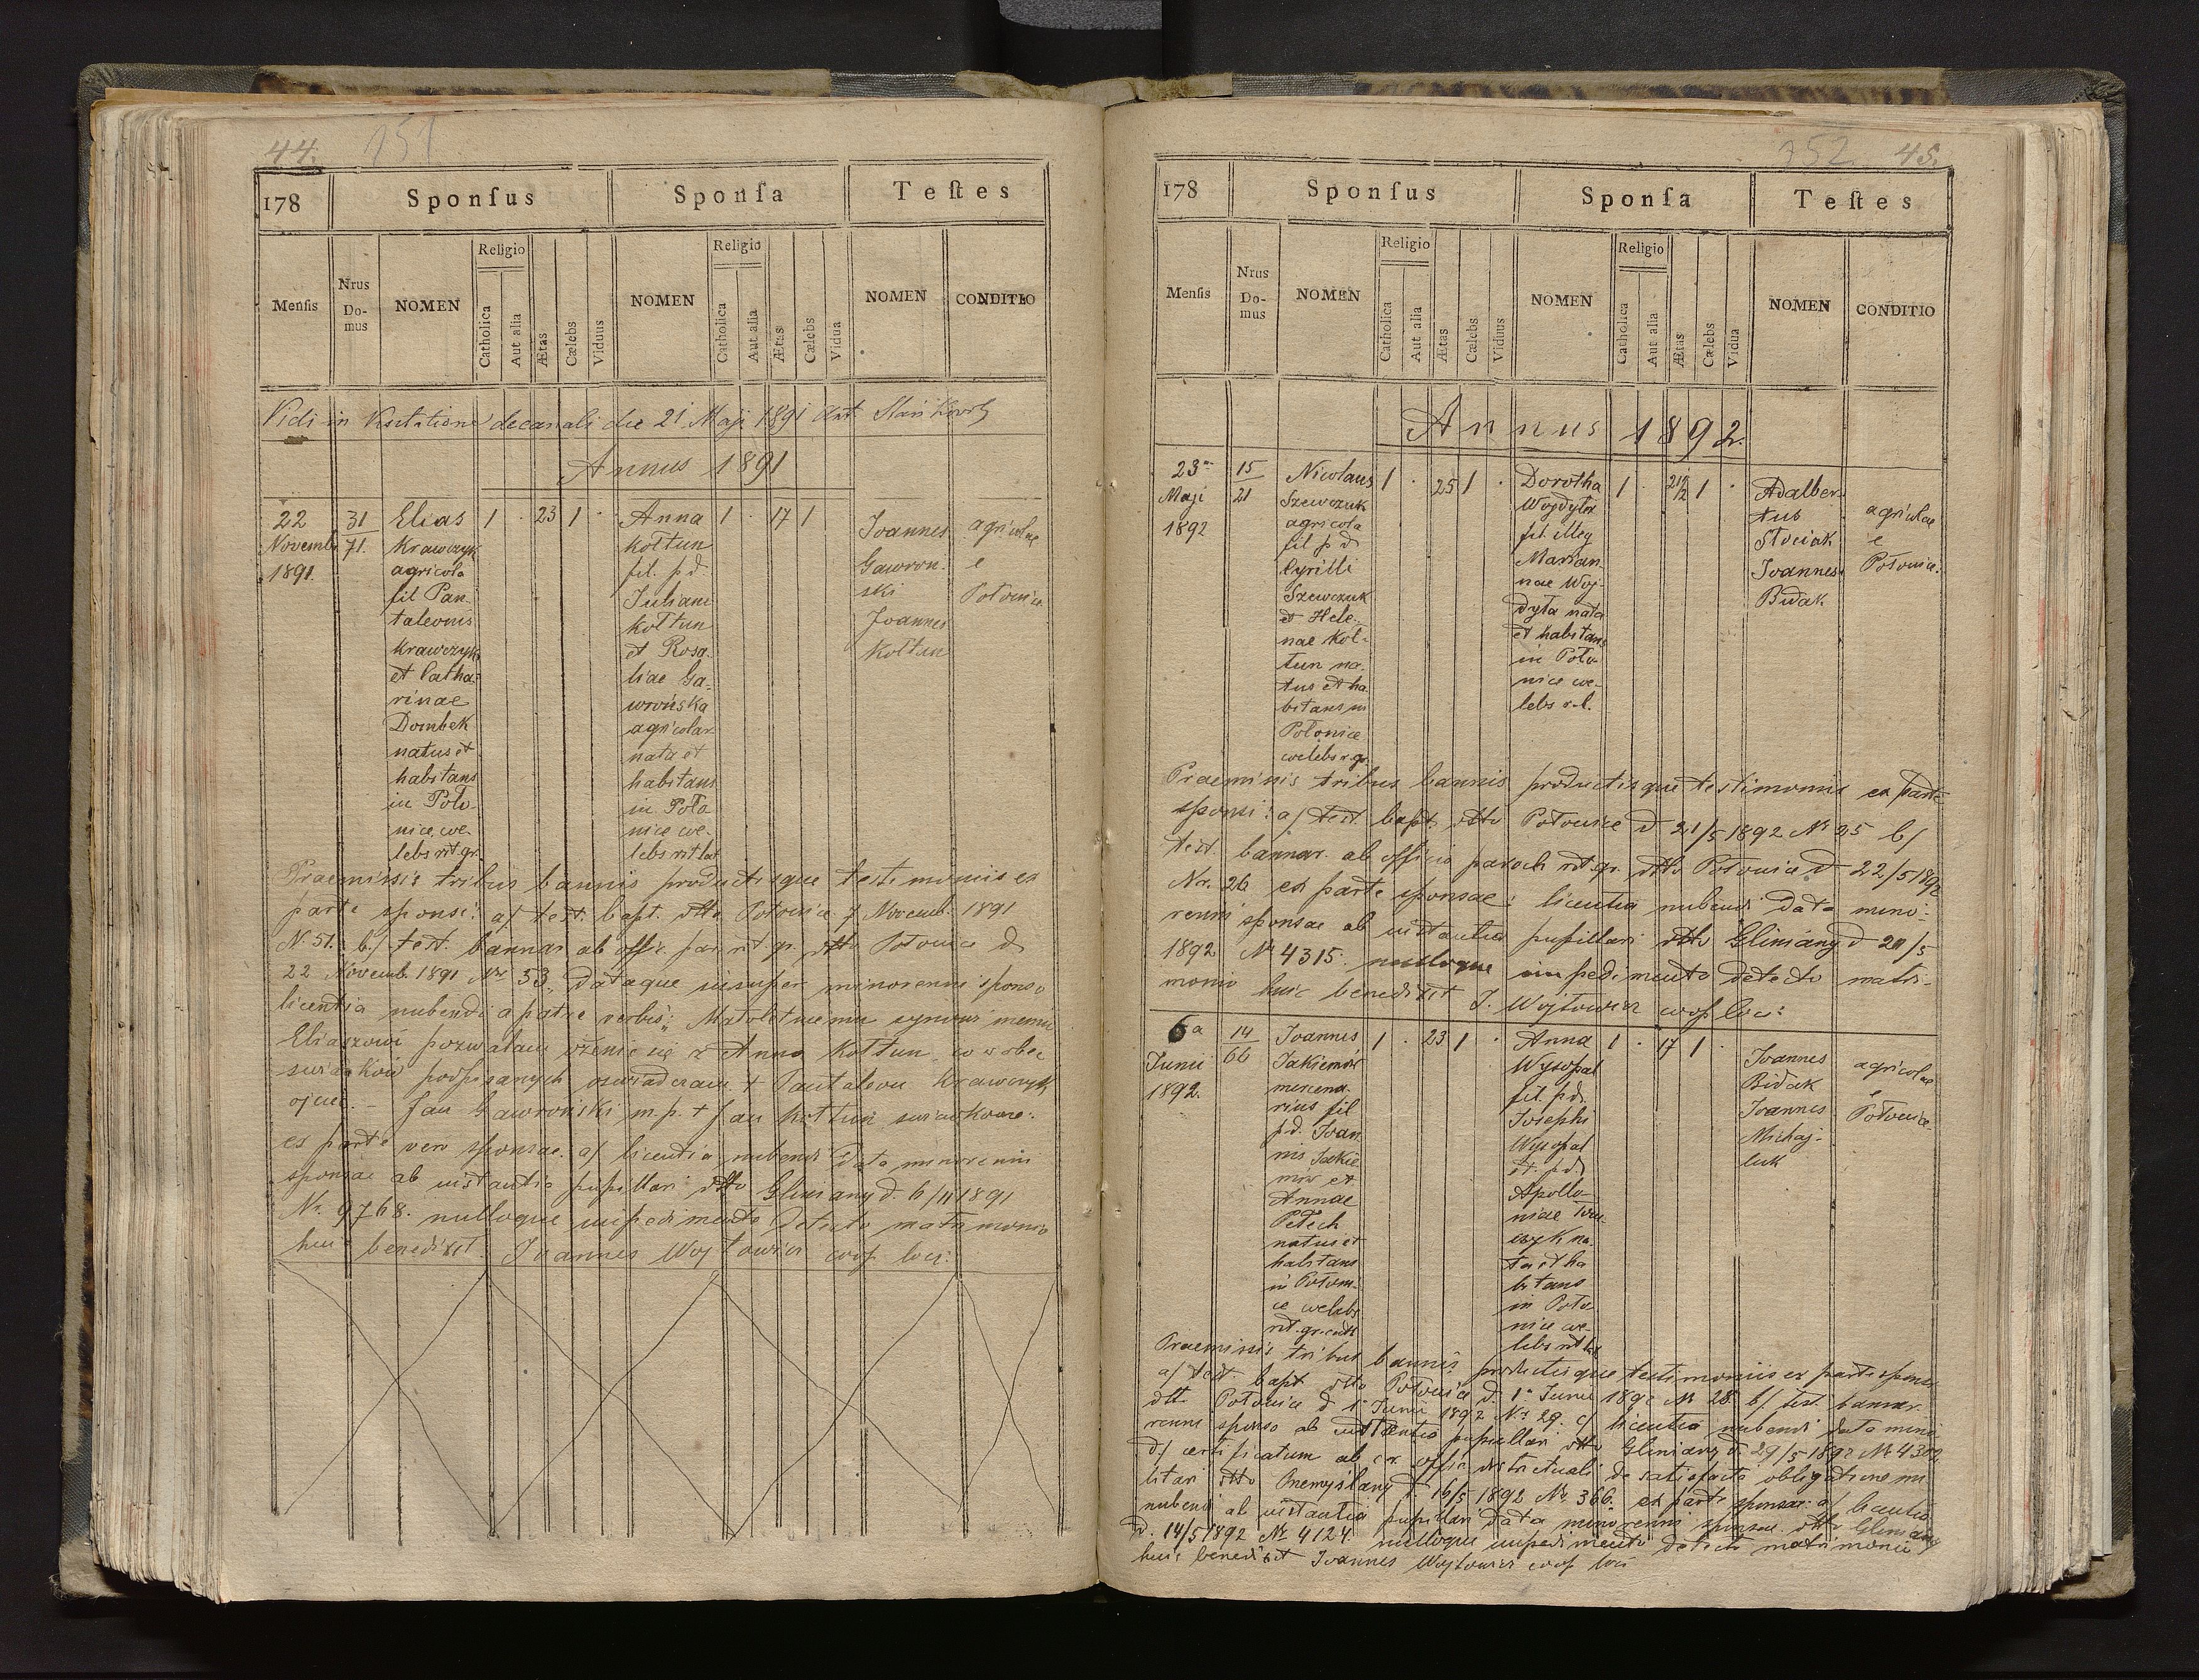 44. 151
178 Sponſus Sponſa Teſtes
Menſis Nrus Domus NOMEN Religio Catholica Aut alia Ætas Cælebs Viduus NOMEN Religio Catholica Aut alia Ætas Cælebs Vidua NOMEN CONDITIO
Vidi in Visitatione decanali die 21 Maji 1891
Annus 1891
22 Novemb. 1891.
31
71.
Elias
Krawczyk
agricola
fil Pan
taleonis
Krawczyk
et Catha-
rinae
Dombek
natus et
habitans
in Poło-
nice coe-
lebs rit.gr.
1 . 23 1 .
Anna
Kołtun
fil. p.d.
Juliani
Kołtun
et Rosa-
liae Ga-
wrońska
agricolar
nata et
habitans
in Poło
nice coe-
lebs rit lat
1 . 17 1
Joannes
Gawron-
ski
Joannes
Kołtun
agricolae
e
Połonice
Praemissis tribus bannis productisque testimoniis ex
parte sponsi: a) test. bapt. dtto Połonice 7 Novemb. 1891
N. 51. b) test. bannar ab offic. par. rit. gr. dtto Połonice d
22 Novemb. 1891 Nr. 53, dataque insuper minorenni sponso
licentia nubendi a patre verbis: Małoletniemu synowi memu
Eliaszowi pozwalam ożenić się z Anną Kołtun, co wobec
świadków podpisanych oświadczam. + Pantaleon Krawczyk
ojciec. – Jan Gawroński m.p. + Jan Kołtun świadkowie:
ex parte vero sponsae. a) licentia nubendi data minorenni
sponsae ab instantia pupillari dtto Gliniany d. 6/11 1891
Nr. 9768. nulloque impedimento detecto matrimonio
huic benedixit. Joannes Wojtowicz coop loci:
152 45.
178 Sponſus Sponſa Teſtes
Menſis Nrus Domus NOMEN Religio Catholica Aut alia Ætas Cælebs Viduus NOMEN Religio Catholica Aut alia Ætas Cælebs Vidua NOMEN CONDITIO
Annus 1892.
23
Maji
1892
15
21
Nicolaus
Szewczuk
agricola
fil p d
Cyrilli
Szewczuk
et Hele-
nae Koł-
tun na-
tus et ha
bitans in
Połonice
coelebs r. gr.
1 . 25 1 .
Dorotha
Wojdyła
fil. illeg
Marian-
nae Woj-
dyła nata
et habitans
in Poło-
nice coe-
lebs r.l.
1 . 21 1/2 1 .
Adalber-
tus
Stociak
Joannes
Bidak
agricolae
e
Połonice.
Praemissis tribus bannis productisque testimoniis ex parte
sponsi: a) test. bapt. dtto Połonice d 21/5 1892 Nr 25 b)
test. bannar. ab officio paroch rit.gr. dtto Połonice d 22/5 1892
Nr. 26 ex parte sponsae: licentia nubendi data mino-
renni sponsae ab instantia pupillari dtto Gliniany d 20/5
1892 Nr 4315. nulloque impedimento detecto matri-
monio huic benedixit J. Wojtowicz coop loci:
6a
Junii
1892.
14
66
Joannes
Jakimow
mercena-
rius fil
p.d. Joan
nis Jakie
mów et
Annae
Petech
natus et
habitans
in Połoni-
ce coelebs
rit.gr.
1 . 23 1 .
Anna
Wysopal
fil. p.d.
Josephi
Wysopal
et p.d.
Apollo-
niae
na-
ta et ha
bitans
in Poło
nice coe-
lebs rit lat
1 . 17 1 .
Joannes
Bidak
Joannes
Michaj-
luk
agricolae
e
Połonice.
Praemissis tribus bannis productisque testimoniis ex parte sponsi
a) test. bapt dtto Połonice d. 1 Junii 1892 Nr 28. b) test. bannar.
dtt Połonice d 1 Junii 1892 Nr. 29. c) licentia nubendi data mino-
renni sponso ab instantia pupillari dtto Gliniany d. 29/5 1892 Nr 4302
d) certificatum ab offic districtuali de satisfacta obligatione mi
litari dtto Przemyślany d. 16/5 1892 Nr. 366. ex parte sponsae: a) licentia
nubendi ab instantia pupillari data minorenni sponsae dtto Gliniany
d. 14/5 1892 Nr 4124. nulloque impedimento detecto matrimonio
huic benedixit Joannes Wojtowicz coop loci